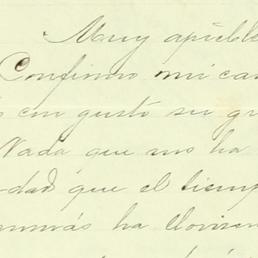 Muy apreciable
Confirmo mi car
con gusto su gr
Nada que nos ha
dad que el tiemp
más ha llovizn